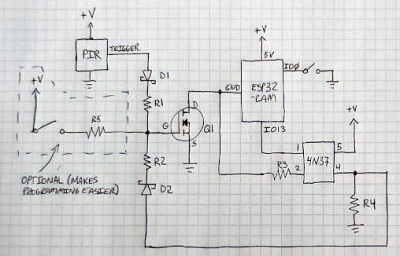 +V
+V
PIR
TRIGGER
D1
+V
5V
ESP32
-CAM
IO0
GND
IO13
R1
D
G
S
Q1
R5
R2
D2
OPTIONAL (MAKES
PROGRAMMING EASIER)
+V
1
2
4N37
5
4
R3
R4